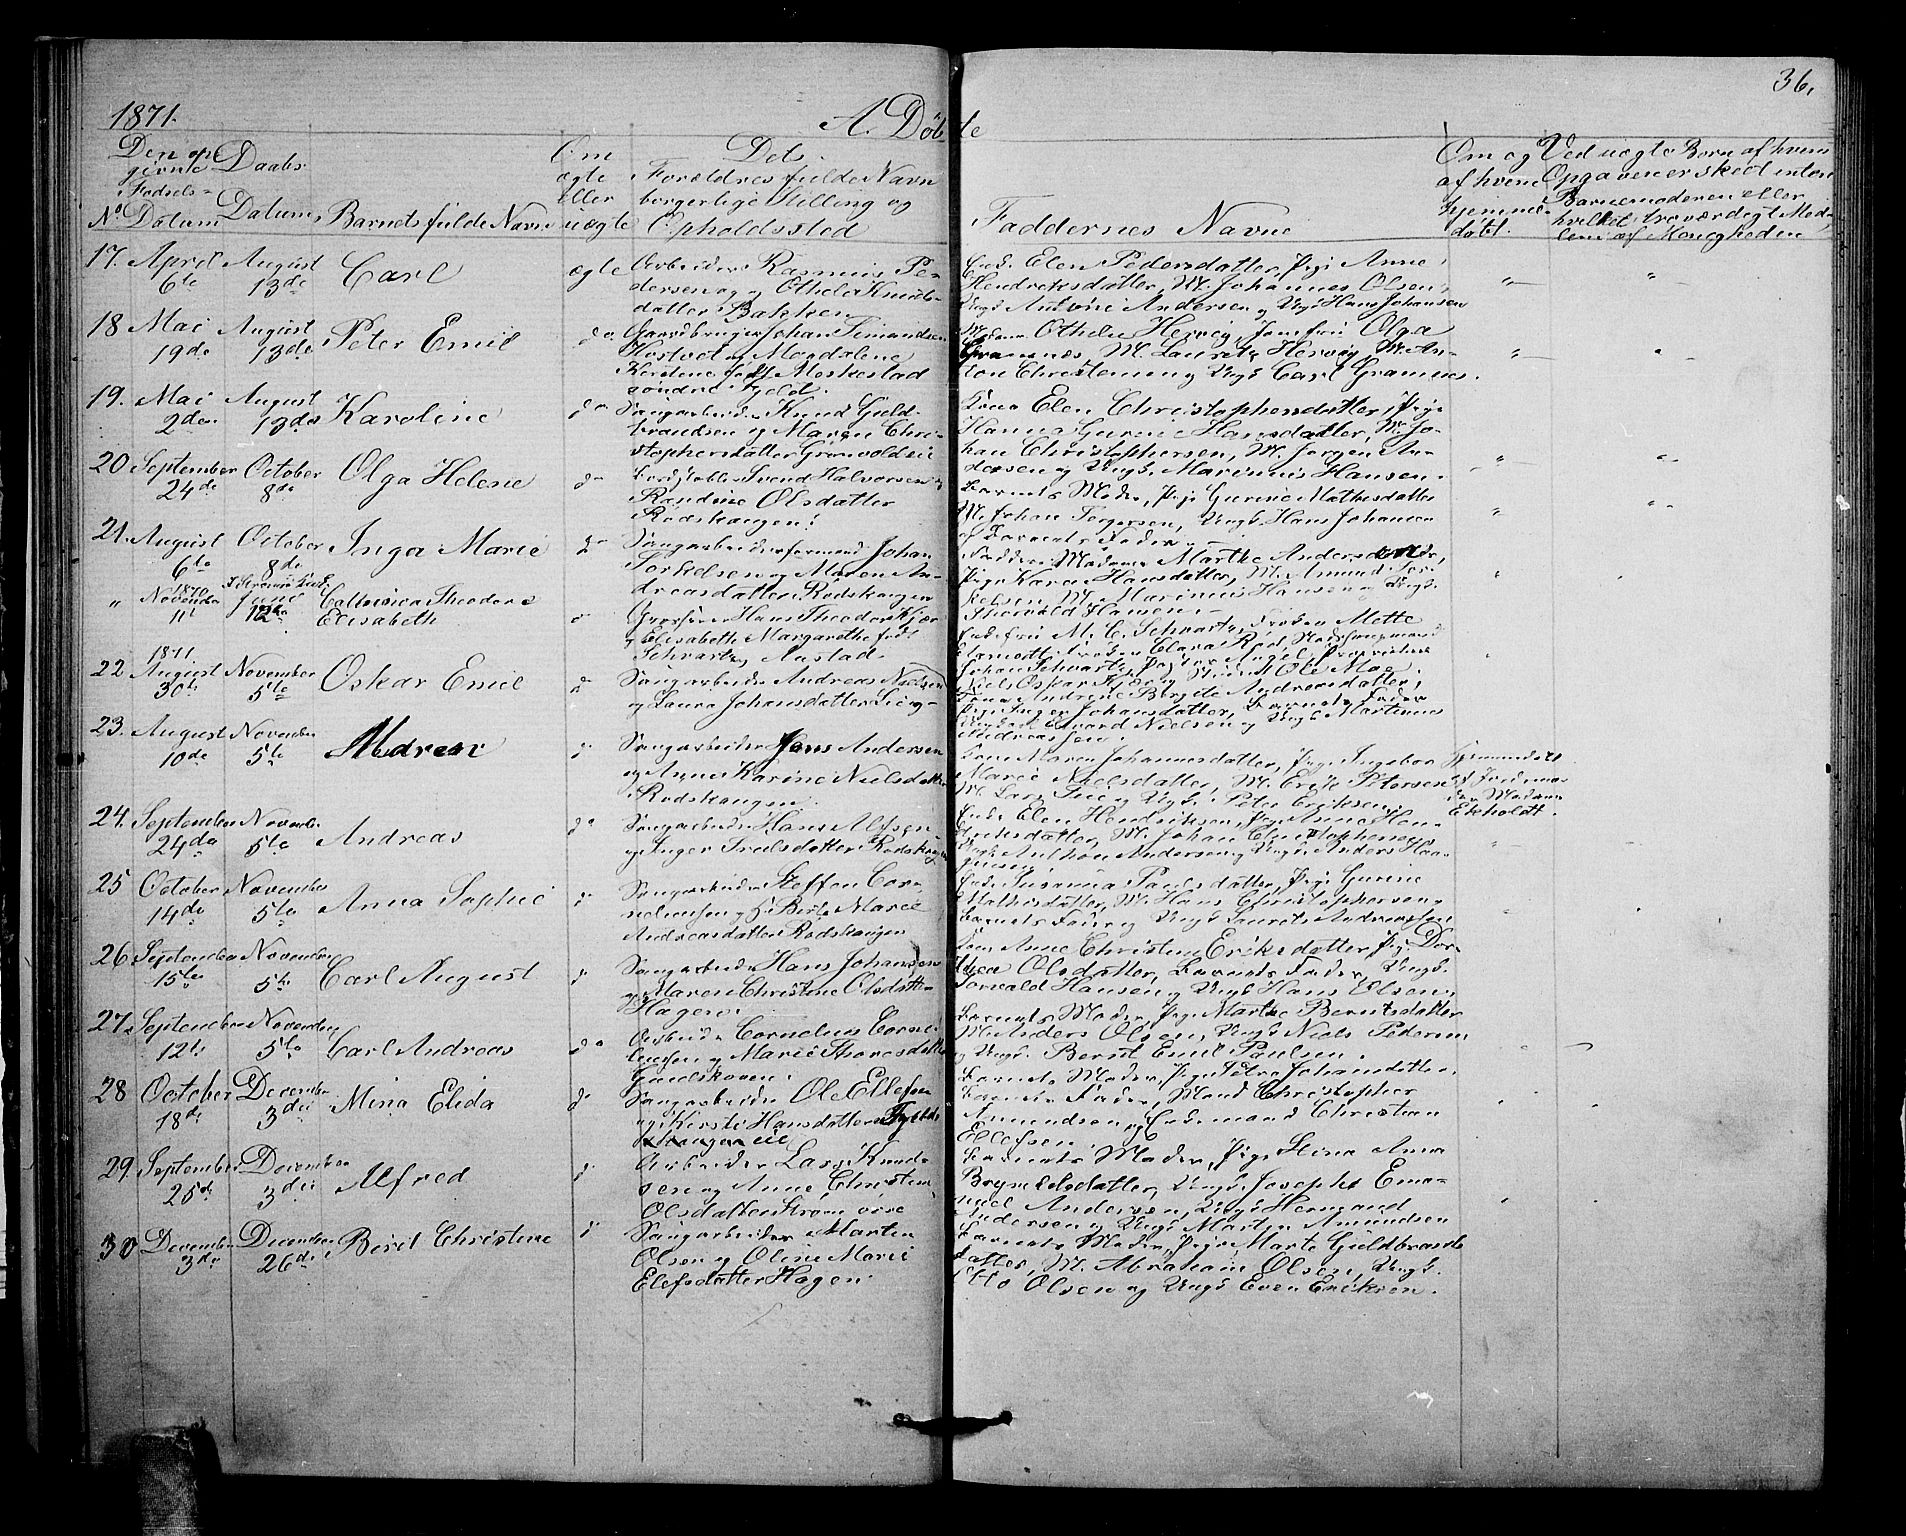 36,
1871.
A. Döbte
Den op
givne
Fødsels-
Datum
Daabs
Datum
No
Barnets fulde Navn
Om
ægte
eller
uægte
Dets
Forældres fulde Navn
borgerlige Stilling og
Opholdssted
Faddernes Navne
Om og
af hvem
hjemme-
døbt.
Ved uægte Børn af hvem
Opgaven er skeet inten
Barnemoderen eller
hvilket troværdigt Med-
lem af Menigheden
17. April 6te August 13de Carl ægte
Arbeider Rasmus Pe-
dersen og Othelie Knuds-
datter Bakken
Enke Elen Pedersdatter, Pige Anne
Hendriksdatter, M. Johannes Olsen,
Ungk. Antoni Andersen og Ungk. Hans Johansen
18 Mai 19de August 13de Peter Emil do
Gaardbruger Johan Simundsen
Hostvet og Magdalene
Kirstine født Moskestad
søndre Fjeld.
Madame Othelie Hervig, Jomfru Olga
Gramnæs, M. Lauritz Hervig, M. An-
ton Christensen og Ungk. Carl Gramnæs.
19. Mai 2den August 13de Karoline do
Saugarbeider Knud Guld-
brandsen og Maren Chri-
stophersdatter Grønvoldeie
Kone Elen Christophersdatter, Pige
Hanna Gurine Hansdatter, M. Jo-
han Christophersen, M. Jørgen An-
dersen og Ungk. Marinius Hansen.
20 September 24de October 8de Olga Helene do
Bordstabler Svend Halvorsen og
Randine Olsdatter
Rødskangen.
Barnets Moder, Pige Gurine Mathisdatter
M. Johan Torgersen, Ungk. Hans Johansen
og Barnets Fader
21. August 6te October 8de Inga Marie do
Saugarbeiderformand Johan
Torkelsen og Maren An-
dreasdatter Rødskangen
Faddere: Madame Marthe Andersen,
Pige Karen Hansdatter, M. Amund Tor-
kelsen, M. Marinius Hansen og Ungk.
Thorvald Hansen.
" 1870 November 11te Juni 12te Theodora
Elisabeth
Grosserer Hans Theodor Kjær
og Elisabeth Margarethe født
Schwartz, Austad.
Enkefru M. C. Schwartz, Frøken Mette
Frøken Clara Rød,
Johan Schwartz,
Niels Oskar Kjær og Student Ole Moe.
1871
22 August 30te November 5te Oskar Emil do
Saugarbeider Andreas Nielsen
og Laura Johansdatter Lie
Kone Andrine Birgite Andreasdatter,
Pige Inger Johansdatter, Barnets Fader
Ungk. Edvard Nielsen og Ungk. Martinius
Andreassen.
23. August 10de November 5te Maren do
Saugarbeider Jens Andersen
og Anne Karine Nielsdatter
Rødskangen
Kone Maren Johannesdatter, Pige Ingebor
Marie Nielsdatter, M. Erik Petersen
M. Lars Lie og Ungk. Peter Eriksen.
Hjemmedøbt
af Jordemo-
der Madame
Ekholdt.
24. September 24de November 5te Andreas do
Saugarbeider Hans Alfsen
og Inger Truls­datter Rødskangen
Enke Elen Hendriksen, Pige Anne Hen-
driksdatter, M. Johan Christophersen,
Ungk. Anthon Andersen og Ungk. Anders Haa-
gensen.
25 October 14de November 5te Anna Sophie do
Saugarbeider Steffen Cor-
neliussen og Berte Marie
Andreasdatter Rødskangen
Enke Susanna Paulsdatter, Pige Gurine
Mathisdatter, M. Hans Christophersen,
Barnets Fader og Ungk. Laurits Andreassen.
26 September 15te November 5te Carl August do
Saugarbeider Hans Johansen
og Maren Christine Olsdatter
Hagen.
Kone Anne Christine Eriksdatter, Pige Dor-
thea Olsdatter, Barnets Fader, Ungk.
Torvald Hansen og Ungk. Hans Olsen.
27. September 12te November 5te Carl Andreas do
Arbeider Cornelius Corne-
liussen og Marie Thoresdatter
Gundskoven.
Barnets Moder, Pige Marthe Berntsdatter
M. Anders Olsen, Ungk. Niels Pedersen
og Ungk. Bernt Emil Paulsen.
28 October 18de December 3die Mina Elida do
Saugarbeider Ole Ellefsen
og Kirsti Hansdatter
Skangeneie
Barnets Moder, Pige Petra Johansdatter,
Barnets Fader, Mand Christopher
Amundsen og Enkemand Christian
Ellefsen.
29. September 25de December 3die Alfred do
Arbeider Lars Knud-
sen og Anne Christine
Olsdatter
Barnets Moder, Pige Stina Anna
Brynildsdatter, Ungk. Joseph Ema-
nuel Andersen, Ungk. Hermand
Andersen og Ungk. Martin Amundsen
30 December 3de December 26de Berit Christine do
Saugarbeider Martin
Olsen og Oline Marie
Elefsdatter Hagen.
Barnets Moder, Pige Marte Guldbrands-
datter, M. Abraham Olsen, Ungk.
Otto Olsen og Ungk. Even Eriksen.